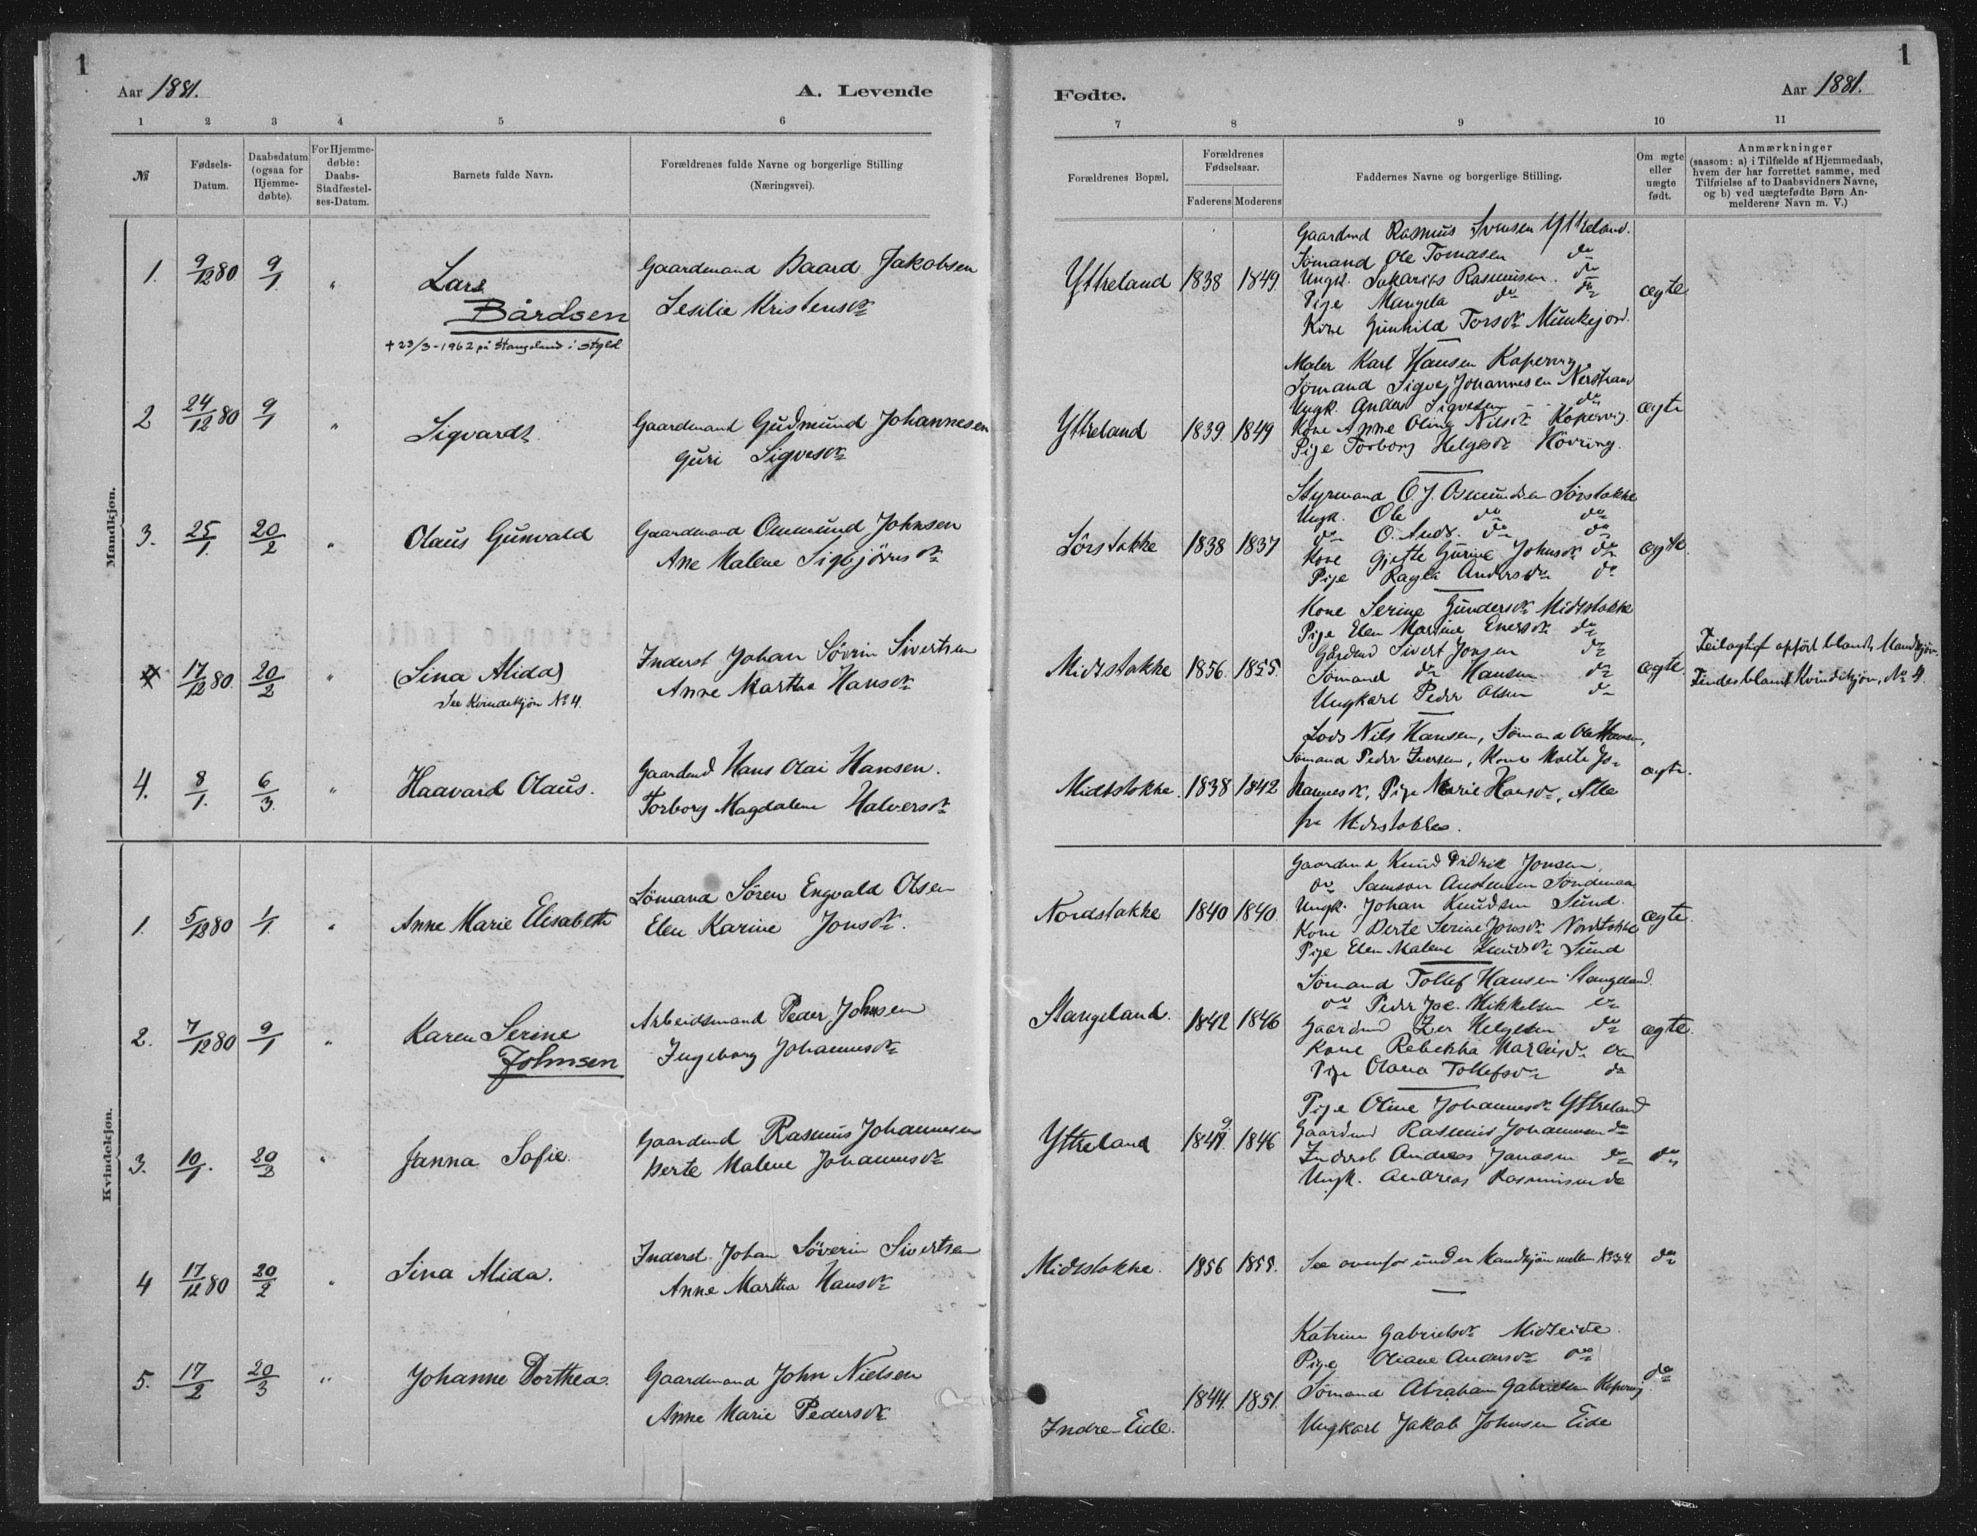 1
Aar 1881.
A. Levende
1 2 3 4 5 6
No
Fødsels-
Datum.
Daabsdatum
(ogsaa for
Hjemme-
døbte).
For Hjemme-
døbte:
Daabs-
Stadfæstel-
ses-Datum.
Barnets fulde Navn.
Forældrenes fulde Navne og borgerlige Stilling
(Næringsvei).
Mandkjøn.
1. 9/12 80 9/1 "
Lars
Bårdsen
+ 23/3-1962 på Stangeland i Skjld
Gaardmand Baard Jakobsen
Lesilie Kristensdr
2 24/12 80 9/1 "
Sigvardt
Gaardmand Gudmund Johannesen
Guri Sigvesdr
3. 25/1 20/2 "
Olaus Gunvald
Gaardmand Ommund Johnsen
Ane Malene Sigbjörnsdr
4 17/12 80 20/2 "
(Sina Alida)
See Kvindekjøn No 4.
Inderst Johan Søvrin Sivertsen
Anne Martha Hansdr
4. 8/1. 6/3 "
Haavard Olaus.
Gaardmd Hans Olai Hansen.
Torborg Magdalene Halversdr
Kvindekjøn.
1. 5/12 80 1/1. "
Anne Marie Elisabeth
Sømand Søren Engvald Olsen
Elen Karine Jonsdr.
2. 7/12 80 9/1 "
Karen Serine
Johnsen
Arbeidsmand Peder Johnsen
Ingeborg Johannesdr
3. 10/1. 20/3 "
Janna Sofie.
Gaardmd Rasmus Johannesen
Berte Malene Johannesdr
4 17/12 80 20/2 "
Sina Alida.
Inderst. Johan Söverin Sivertsen
Anne Martha Hansdr
5. 17/2 20/3 "
Johanne Dorthea.
Gaardmand John Nielsen
Anne Marie Pedersdr
1
Fødte.
Aar 1881.
7 8 9 10 11
Forældrenes Bopæl.
Forældrenes
Fødselsaar.
Faderens Moderens
Faddernes Navne og borgerlige Stilling.
Om ægte
eller
uægte
født.
Anmærkninger
(saasom: a) i Tilfælde af Hjemmedaab,
hvem der har forrettet samme, med
Tilføielse af to Daabsvidners Navne,
og b) ved uægtefødte Børn An-
melderens Navn m. V.)
Yttreland 1838 1849
Gaardmd Rasmus Svensen Yttreland.
Sømand Ole Tomasen do
Ungk. Sakarias Rasmusen do
Pige Mangela do do
Kone Gunhild Torsdr Munkejord.
ægte
Yttreland 1839 1849
Maler Karl Hansen Kopervig
Sømand Sigvej Johannesen Nerstrand
Ungk. Anders Sigvesen do
Kone Anne Oline Nilsdr Kopervig.
Pige Torborg Helgesdr Hovring.
ægte
Sørstokke 1838 1837
Styrmand O. J. Osmundsen Sørstokke
Ungk. Ole do do
do O. Ands. do do
Kone Gjette Gurine Johnsdr do
Pige Ragla Andersdr do
ægte.
Midtstokke 1856. 1855.
Kone Serine Gundersdr Midtstokke
Pige Elen Martine Enersdr do
Gårdmd Sivert Jonsen do
Sømand do Hansen do
Ungkarl Peder Olsen do
ægte.
Feilagtigt opført blandt Mandkjøn.
Findes blant Kvindekjøn, No 4.
Midtstokke. 1838 1842
Lods Nils Hansen, Sømand Ole Hansen,
Sømand Peder Iversen, Kone Malte Jo-
hannesdr, Pige Marie Hansdr, Alle
fra Midtstokke.
ægte.
Nordstokke 1840 1840.
Gaardmd Knud Didrik Jonsen,
do Samson Austensen
Ungk. Johan Knudsen Sund.
Kone Berte Serine Jonsdr Nordstokke
Pige Elen Malene Knudsdr Sund
ægte.
Stangeland. 1842 1846
Sømand Tollef Hansen Stangeland.
do Peder Jac. Mikkelsen do
Gaardmd Iver Helgesen do
Kone Rebekka do
Pige Olava Tollefsdr do
ægte.
Yttreland 1849. 1846
Pige Oline Johannesdr Yttreland
Gaardmd Rasmus Johannesen do
Inderst Andreas Janasen do
Ungk. Andreas Rasmusen do
do
Midtstokke. 1856 1855.
See ovenfor under Mandkjøn mellem No 3 & 4.
do
Indre Eide. 1844. 1851.
Katrine Gabrielsdr Midteide.
Pige Oliane Andersdr do
Sømand Abraham Gabrielsen Kopervig
Ungkarl Jakob Johnsen Eide
do